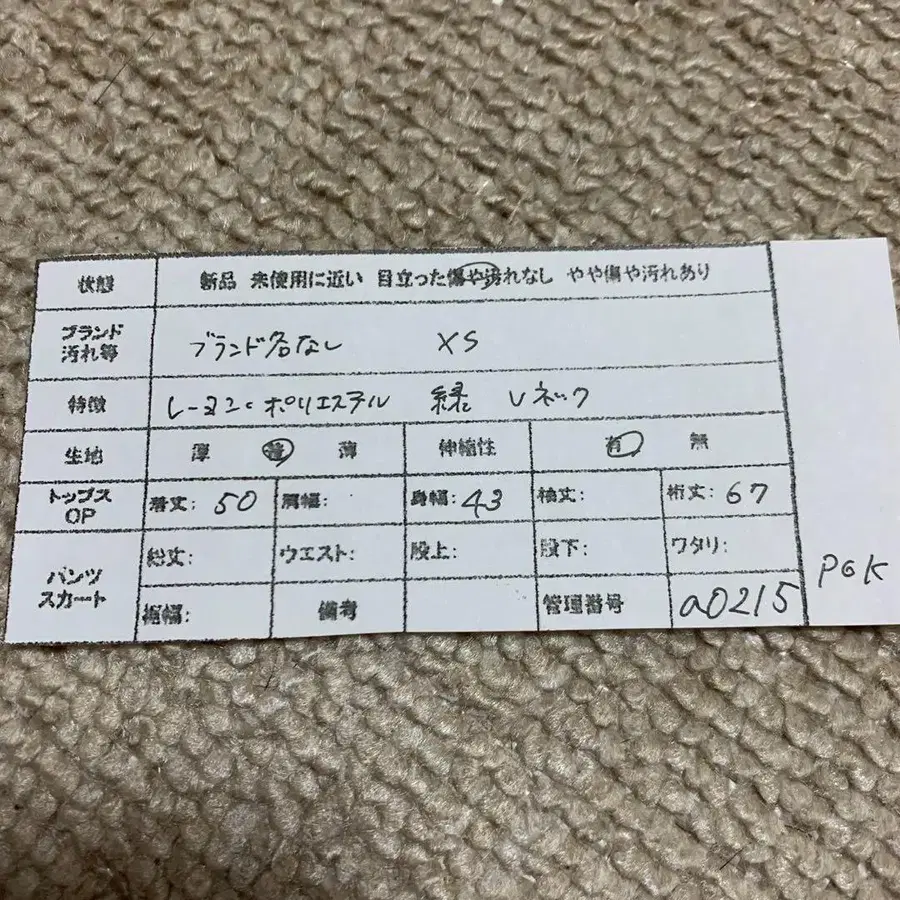 状態 新品 未使用に近い 目立った傷や汚れなし やや傷や汚れあり
ブランド 汚れ等 ブランド名なし XS
特徴 レーヨン ポリエステル 緑 Vネック
生地 厚 普 薄 伸縮性 有 無
トップス OP 着丈: 50 肩幅: 身幅: 43 袖丈: 裄丈: 67
パンツ スカート 総丈: ウエスト: 股上: 股下: ワタリ:
裾幅: 備考 管理番号 a0215
PGK